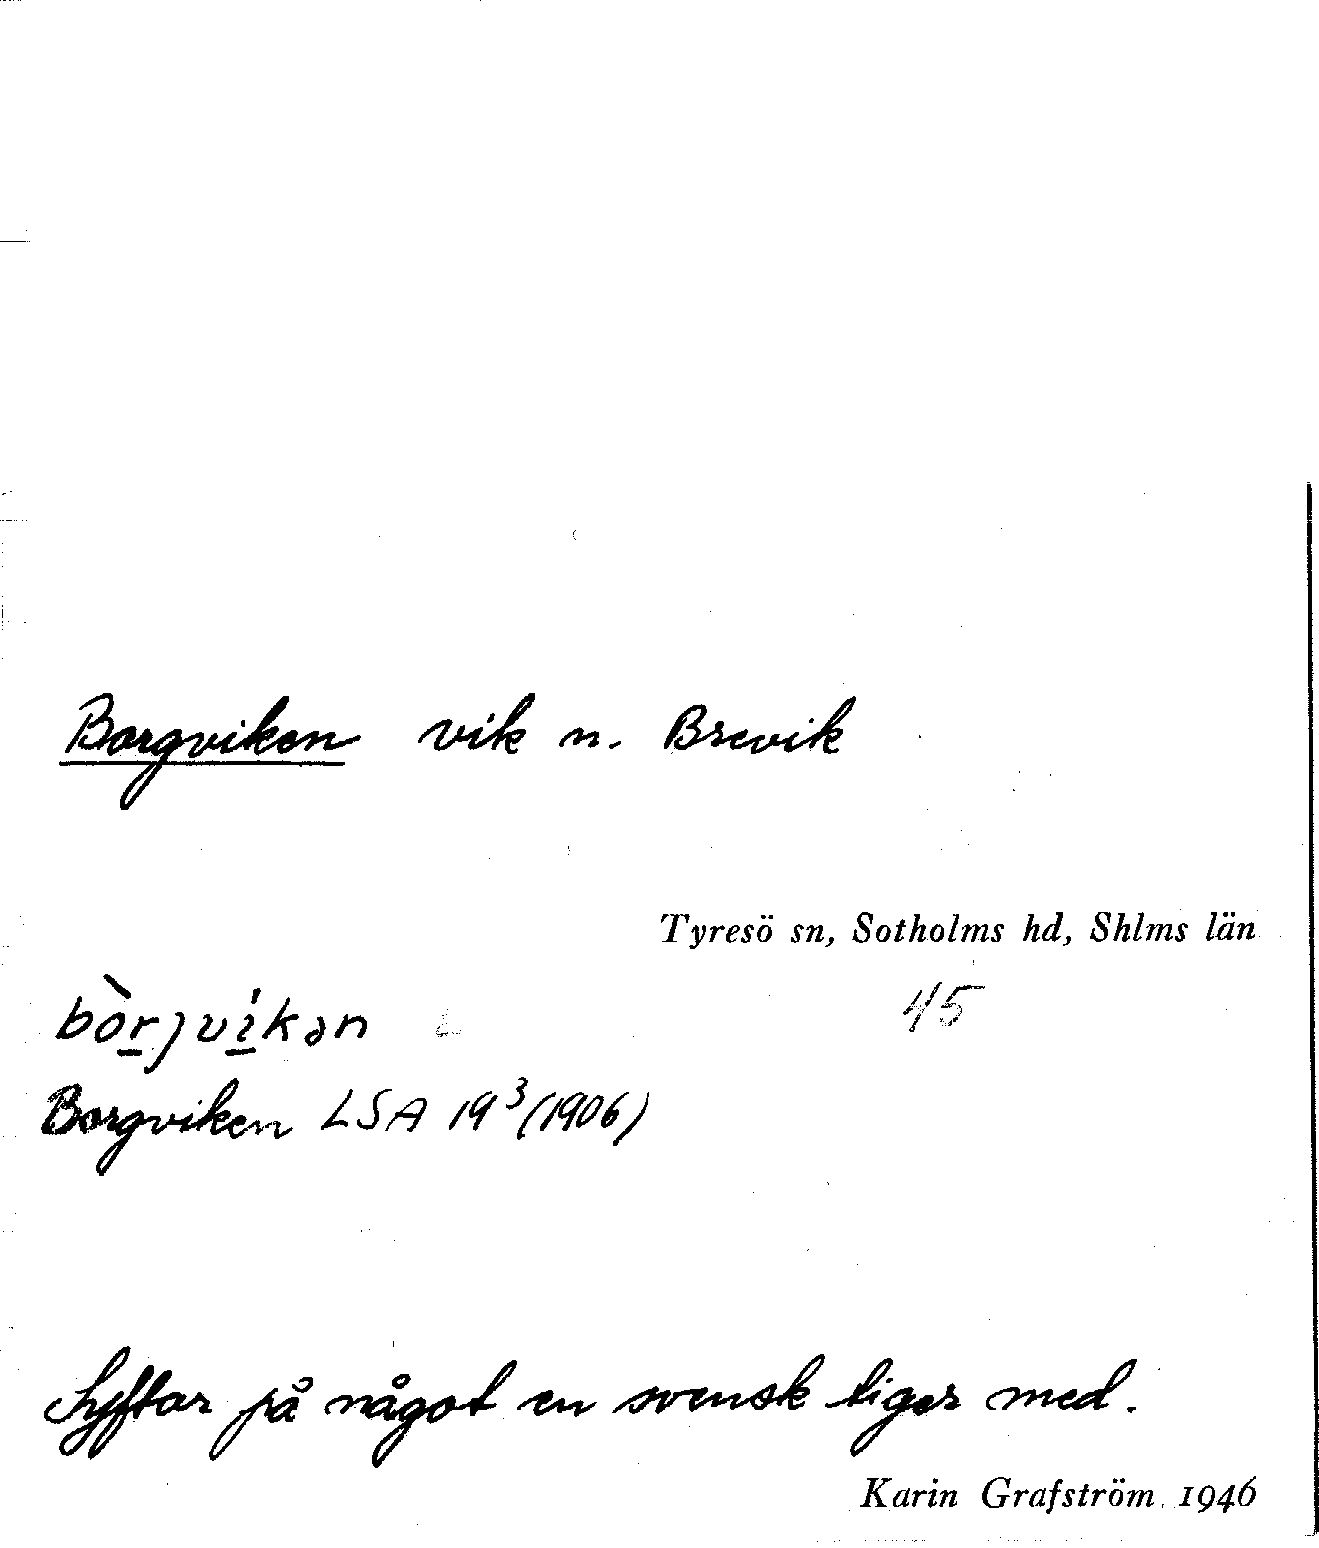 Borgviken vik n. Brevik
Tyresö sn, Sotholms hd, Shlms län
45
bòrjvíkən
Borgviken LSA 19³ (1906)
Syftar på något en svensk tiger med.
Karin Grafström 1946